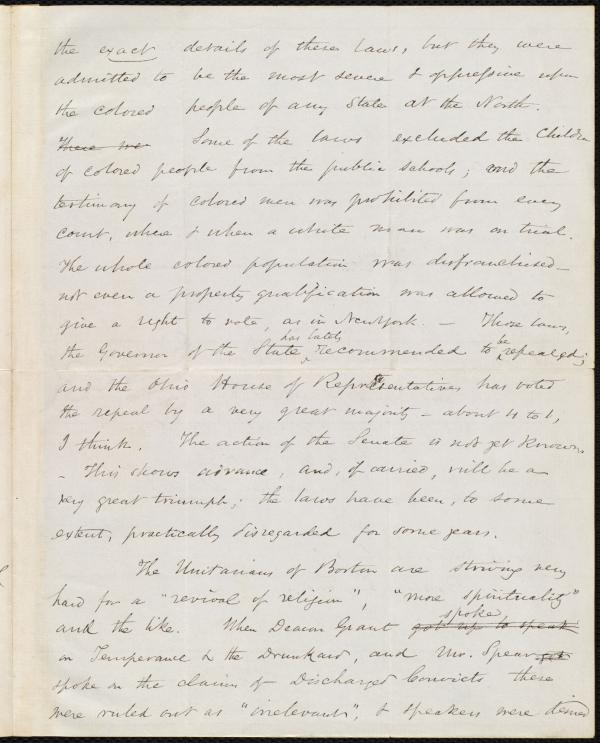 the exact details of these laws, but they were
admitted to be the most severe & oppressive upon
the colored people of any State at the North.
There we Some of the laws excluded the Children
of colored people from the public schools; and the
testimony of colored men was prohibited from every
court, where & when a white man was on trial.
The whole colored population was disfranchised –
not even a property qualification was allowed to
give a right to vote, as in New York. – Those laws,
has lately be
the Governor of the State ^ recommended to ^ repealed;
and the Ohio House of Representatives has voted
the repeal by a very great majority – about 4 to 1,
I think. The action of the Senate is not yet known.
– This shows advance, and, if carried, will be a
very great triumph; the laws have been, to some
extent, practically disregarded for some years.
The Unitarians of Boston are striving very
hard for a "revival of religion", "more spirituality"
spoke
and the like. When Deacon Grant got up to speak
on Temperance & the Drunkard, and Mr. Spear got
spoke on the claims of Discharged Convicts these
were ruled out as "irrelevant", & speakers were